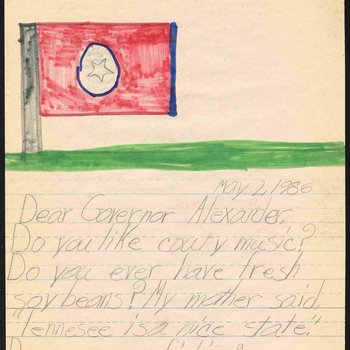 May 2, 1986
Dear Governor Alexander,
Do you like couty music?
Do you ever have fresh
soy beans? My mother said,
"Tennesee is a nice state."